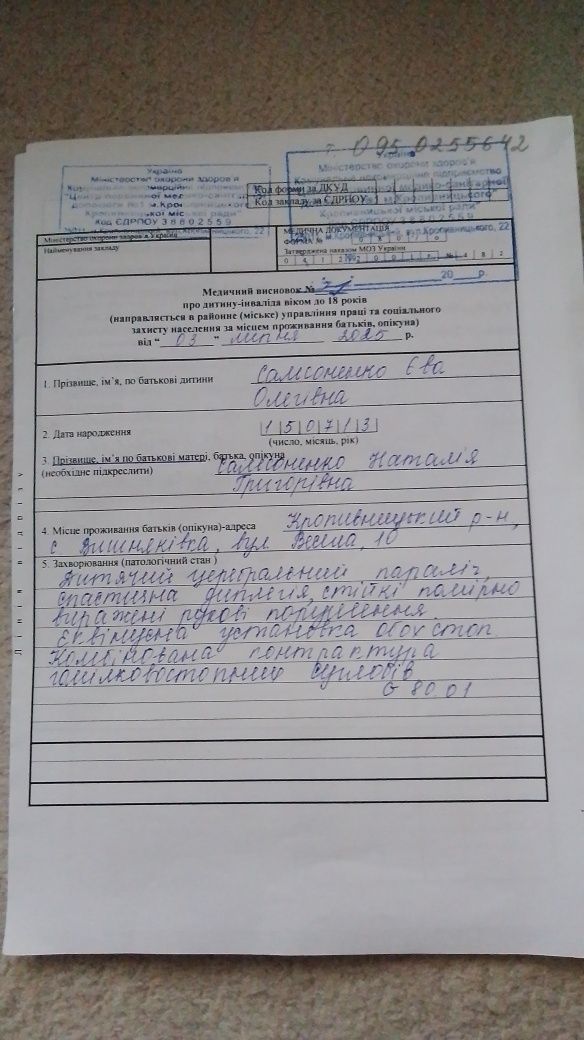 т. 095 0255642
Україна
Міністерство охорони здоров'я
Код ЄДРПОУ 38602559
Україна
Міністерство охорони здоров'я
Кропивницької міської ради
Код форми за ДКУД
Код закладу за ЄДРПОУ
Міністерство охорони здоров'я України
Найменування закладу
МЕДИЧНА ДОКУМЕНТАЦІЯ
ФОРМА №
Затверджена наказом МОЗ України
Медичний висновок № 20 р.
про дитину-інваліда віком до 18 років
(направляється в районне (міське) управління праці та соціального
захисту населення за місцем проживання батьків, опікуна)
від "03" липня 2025 р.
1. Прізвище, ім'я, по батькові дитини Самсоненко Єва
Олегівна
2. Дата народження 150713
(число, місяць, рік)
3 Прізвище, ім'я по батькові матері, батька, опікуна
(необхідне підкреслити) Самсоненко Наталія
Григорівна
4. Місце проживання батьків (опікуна)-адреса Кропивницький р-н,
с Вишняківка, вул. Весела, 10
5. Захворювання (патологічний стан)
Дитячий церебральний параліч,
спастична диплегія, стійкі помірно
виражені рухові порушення.
Еквінусна установка обох стоп
Комбінована контрактура
гомілковостопних суглобів
G 80.01
Лінія відрізу